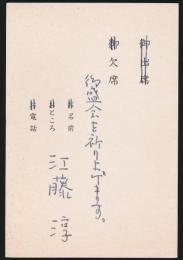 御出席
御欠席
御盛会を祈り上げます。
御名前
江藤淳
御ところ
御電話